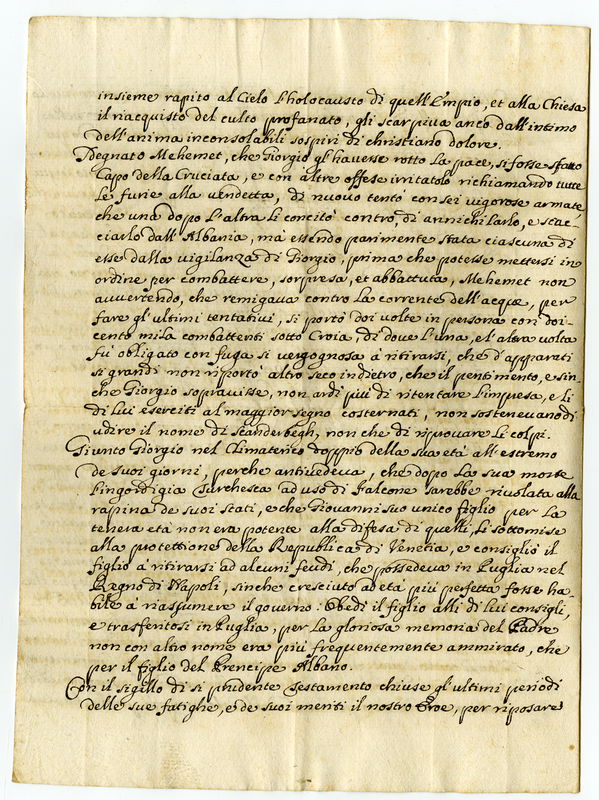 insieme rapito al Cielo l'holocausto di quell'Empio, et alla Chiesa
il riacquisto del culto profanato, gli scarpiva anco dall'intimo
dell'anima inconsolabili sospiri di christiano dolore.
Sdegnato Mehemet, che Giorgio gl'havesse rotto la pace, si fosse fatto
Capo della Cruciata, e con altre offese irritatolo richiamando tutte
le furie alla vendetta, di nuovo tentò con sei vigorose armate,
che una dopo l'altra li concitò contro, di annichilarlo, e scac-
ciarlo dall'Albania, mà essendo parimente stata ciascuna di
esse dalla vigilanza di Giorgio, prima che potesse mettersi in
ordine per combattere, sorpresa, et abbattuta, Mehemet non
avvertendo, che remigava contro la corrente dell'acque, per
fare gl'ultimi tentativi, si portò doi volte in persona con doi-
cento mila combattenti sotto Croia, di dove l'una, e l'altra volta
fù obligato con fuga si vergognosa à ritirarsi, che d'apparati
si grandi non riportò altro seco indietro, che il pentimento, e sin-
che Giorgio sopravisse, non ardì più di ritentare l'impresa, e li
di lui eserciti al maggior segno costernati, non sostenevano di
udire il nome di Scanderbegh, non che di riprovare li colpi.
Giunto Giorgio nel Climaterico doppio della sua età all'estremo
de suoi giorni, perche antivedeva, che dopo la sua morte
l'ingordigia Turchesca ad uso di Falcone sarebbe rivolata alla
rapina de suoi stati, e che Giovanni suo unico figlio per la
tenera età non era potente alla difesa di quelli, li sottomise
alla protettione della Republica di Venetia, e consigliò il
figlio à ritirarsi ad alcuni feudi, che possedeva in Puglia nel
Regno di Napoli, sinche cresciuto ad età più perfetta fosse ha-
bile à riassumere il governo: Obedì il figlio alli di lui consigli,
e trasferitosi in Puglia, per la gloriosa memoria del Padre
non con altro nome era più frequentemente ammirato, che
per il figlio del Prencipe Albano.
Con il sigillo di si prudente Testamento chiuse gl'ultimi periodi
delle sue fatighe, e de suoi meriti il nostro Eroe, per riposare